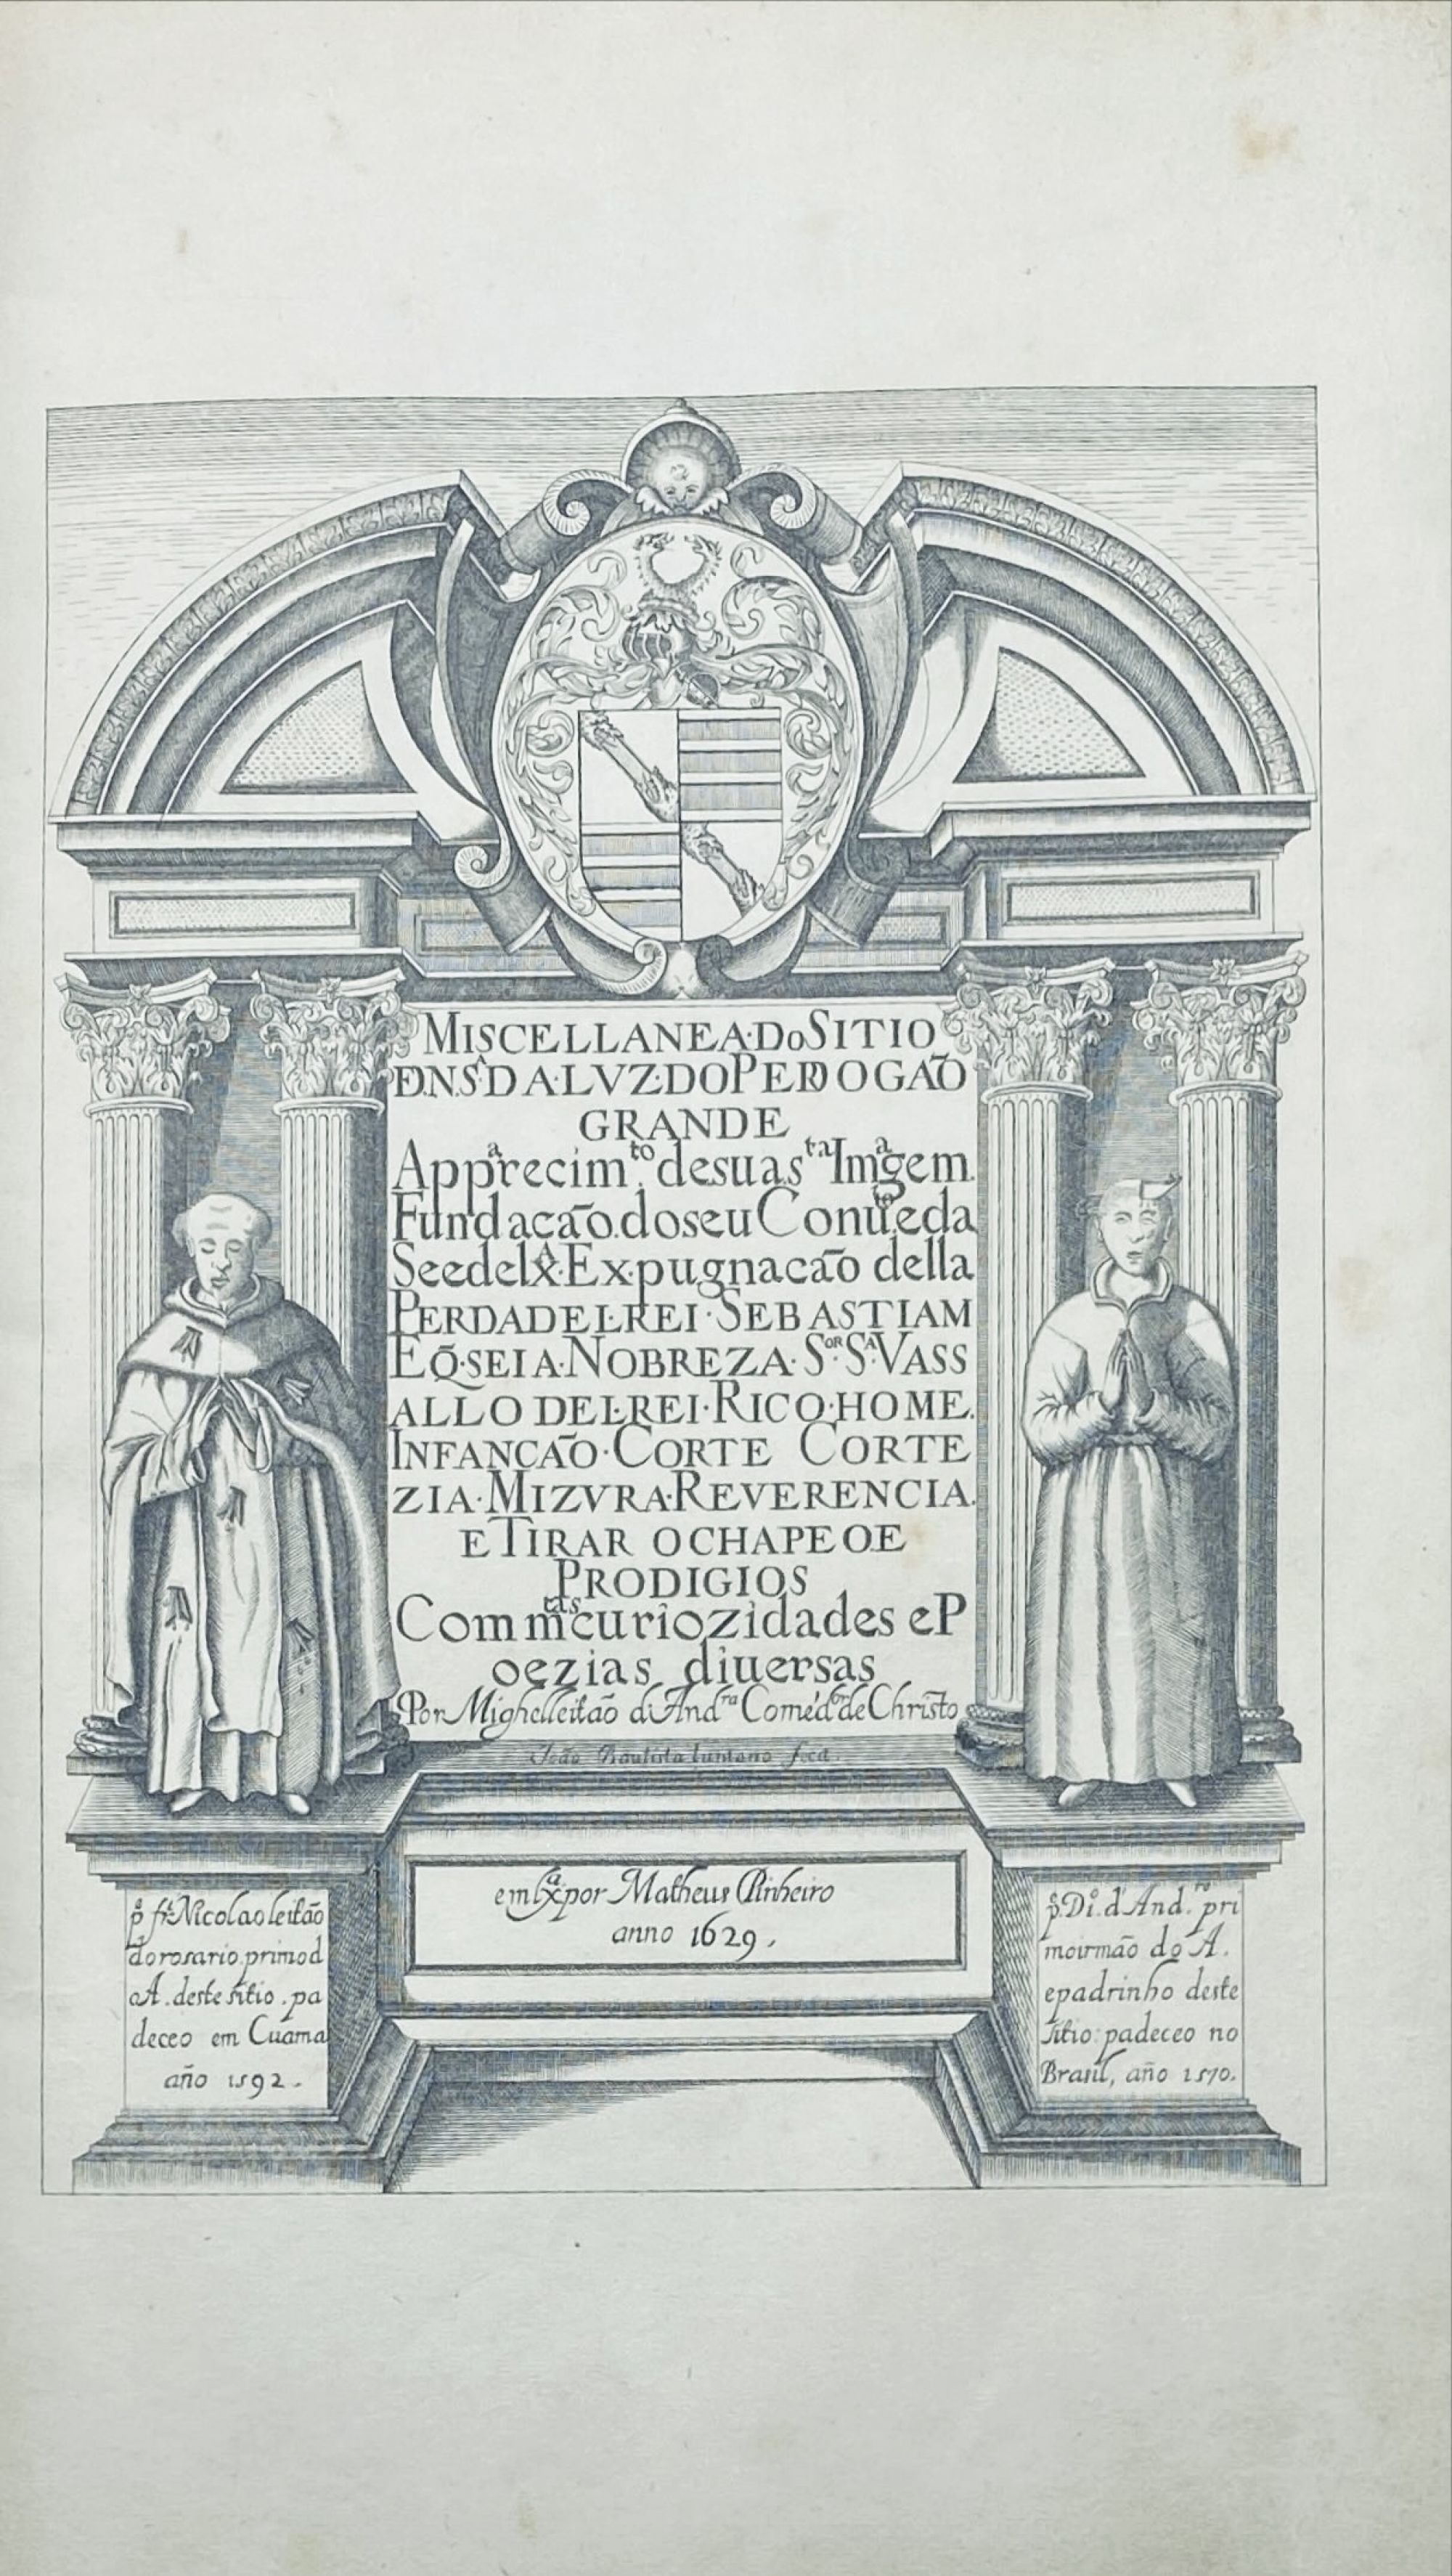 MISCELLANEA·DoSITIO
D·N·Sᴬ·DA·LVZ·DOPEDROGAÕ
GRANDE
Appᵃrecimᵗᵒ desuasᵗᵃImᵃgem
Fundacão.doseuConuᵗᵒeda
SeedelxᴬExpugnacão della
PERDADELREI·SEBASTIAM
EQ̃·SEIA·NOBREZA·Sᴼᴿ·Sᴬ·VASS
ALLO DEL·REI·RICO·HOME.
INFANCAÕ·CORTE CORTE
ZIA·MIZVRA·REVERENCIA.
ETIRAR OCHAPEOE
PRODIGIOS
Commᵗᵃˢcuriozidades eP
oezias diuersas
Por Mighelleitão d'Andʳᵃ Coméd.ᵒʳde Christo
João Bautista fecit.
emlxᵃpor Matheus Pinheiro
anno 1629.
pᵉ frᵉNicolaoleitão
dorosario.primod
oA.destesitio.pa
deceo em Cuama
año 1592.
pᵉ·Diᵒ.d'And.ʳᵉ pri
moirmão do A.
epadrinho deste
sitio: padeceo no
Brasil, año 1570.